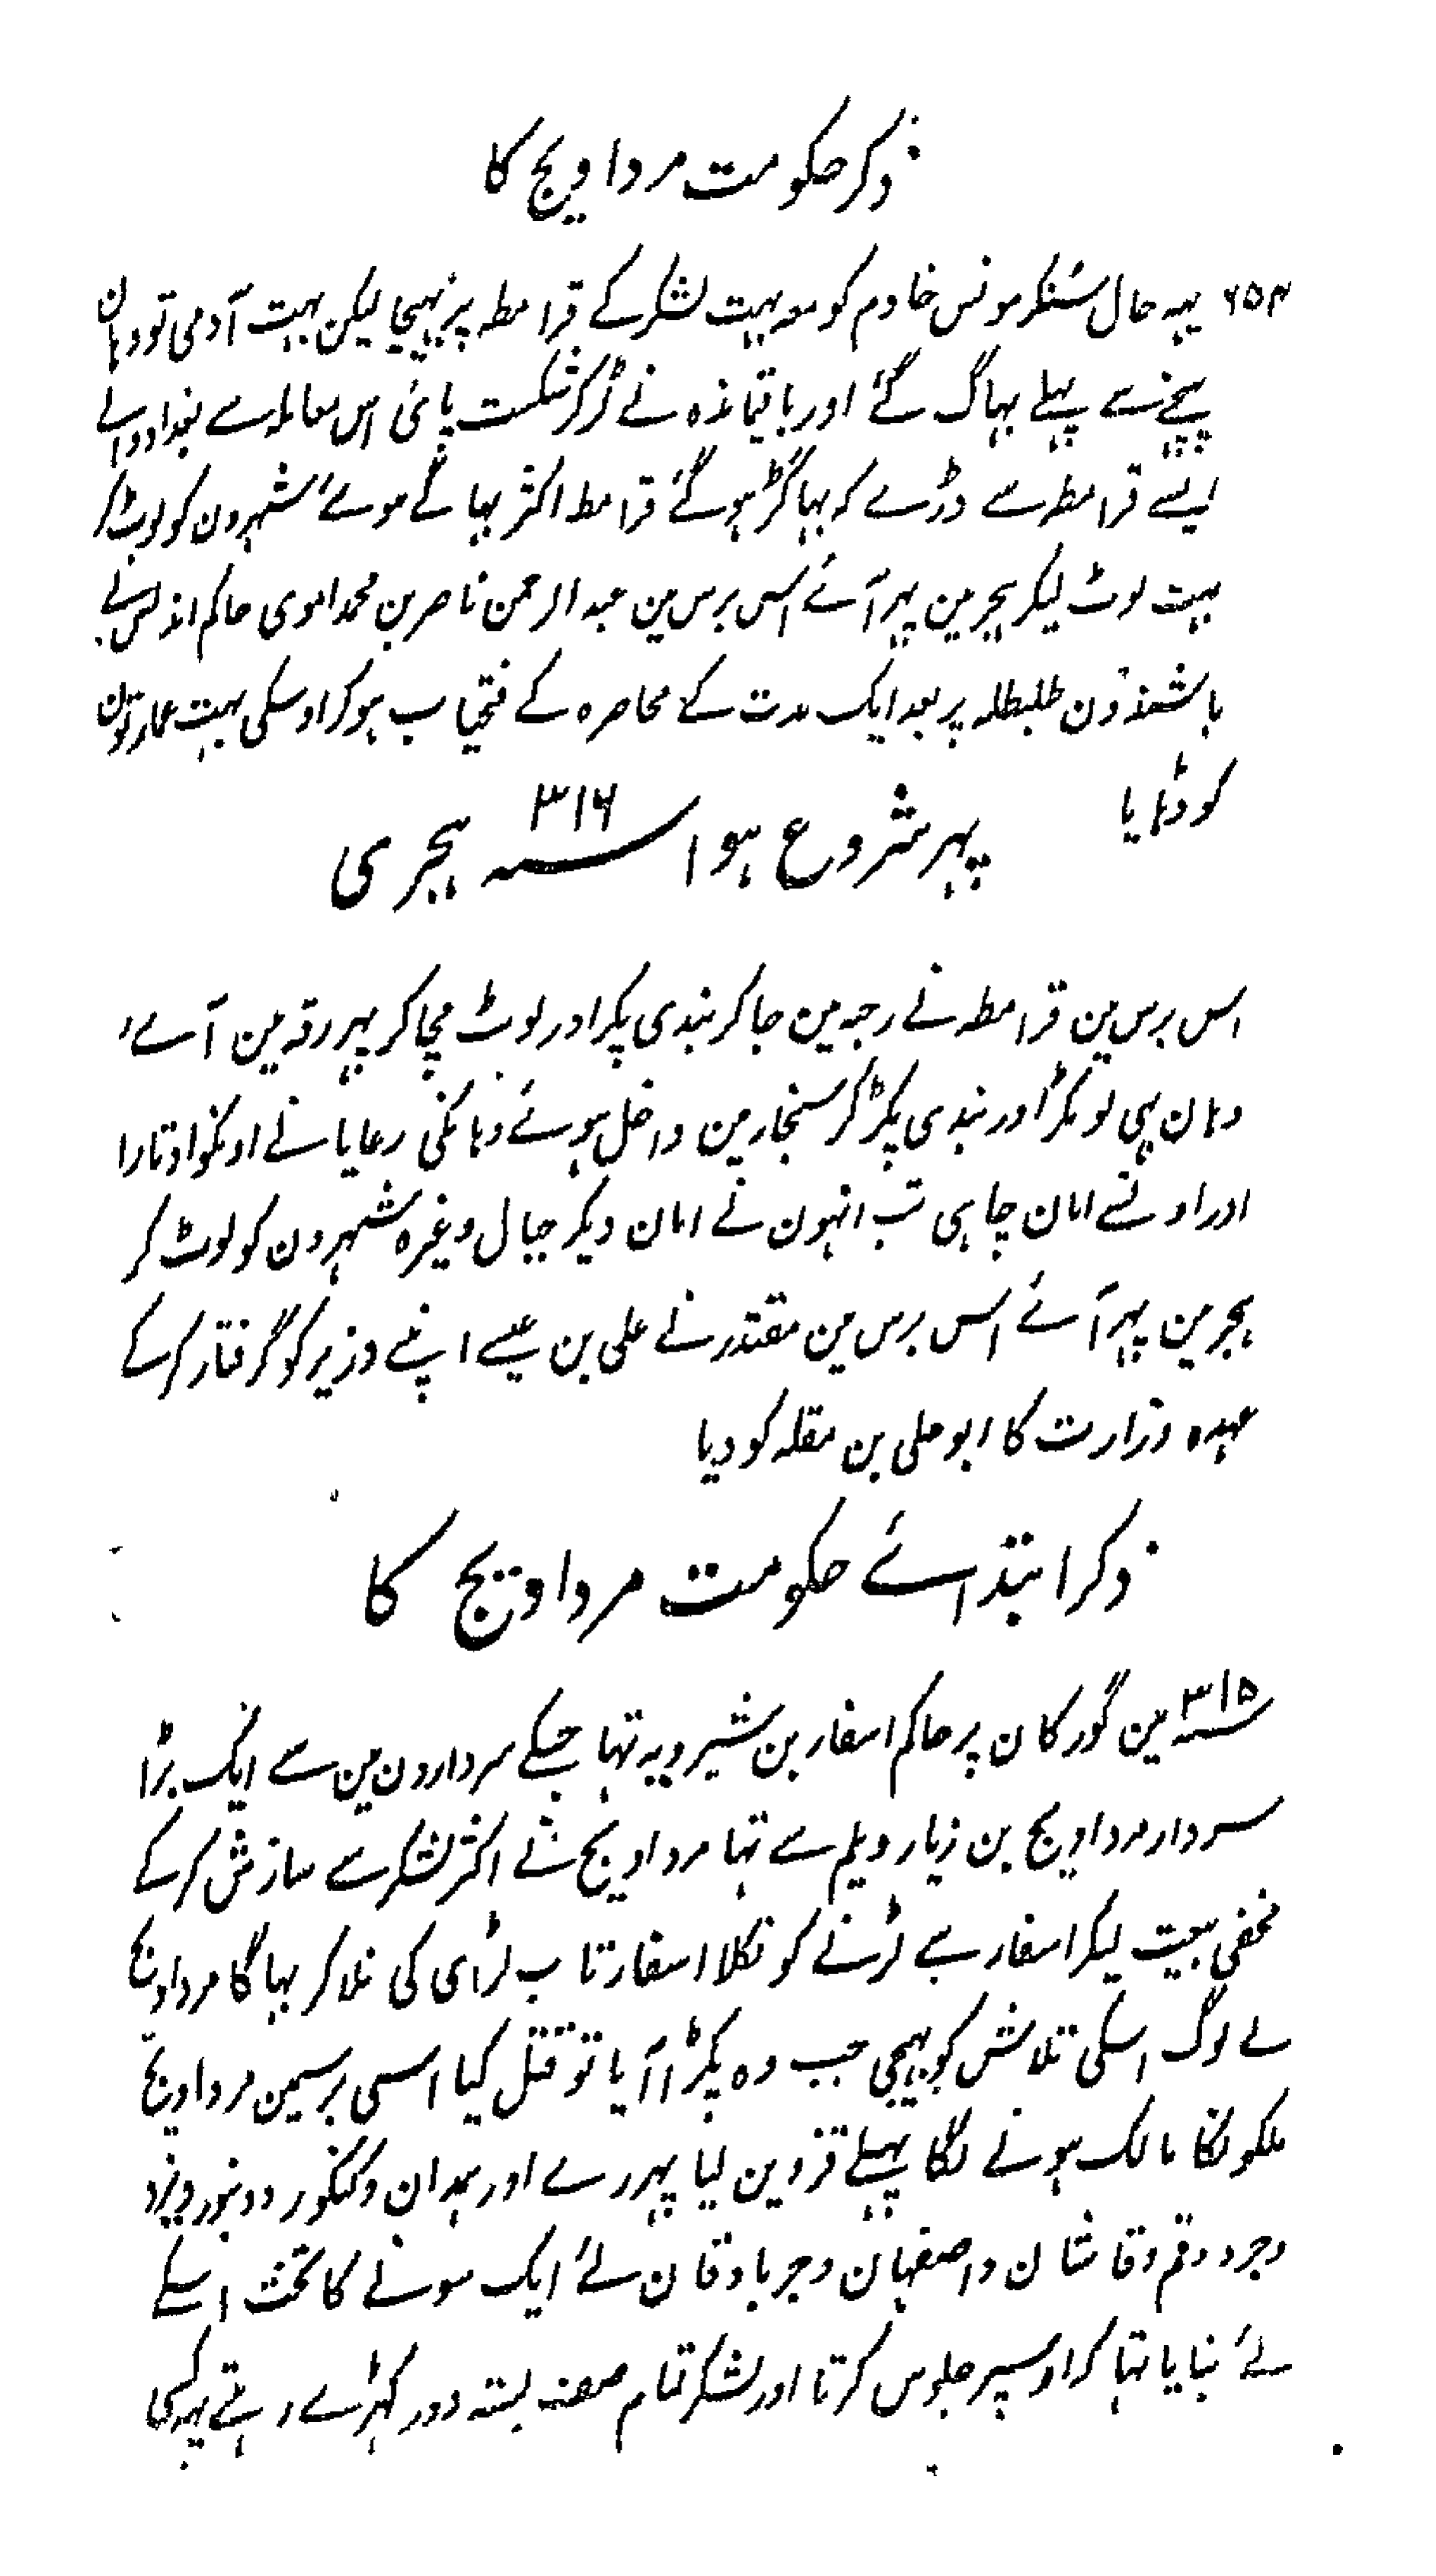 ذکر حکومت مرداویج کا
۶۵۴ یہہ حال سنکر مونس خادم کو معہ بہت لشکر کے قرامطہ پر بھیجا لیکن بہت آدمی تو وہان
پہنچنے سے پہلے بہاگ گئے اور باقیماندہ نے لڑکر شکست پائی اس معاملہ سے بغداد والے
ایسے قرامطہ سے ڈرے کہ بہاگڑ ہو گئے قرامطہ اکثر بہاگے ہوے شہرون کو لوٹ کر
بہت لوٹ لیکر ہجر مین پہر آئے اس برس مین عبدالرحمن ناصر بن محمد اموی حاکم اندلس نے
باشندون طلیطلہ پر بعد ایک مدت کے محاصرہ کے فتحیاب ہو کر اوسکی بہت عمارتون
کو ڈہایا
پہر شروع ہوا سنہ ۳۱۶ ہجری
اس برس مین قرامطہ نے رحبہ مین جا کر بندی پکر اور لوٹ مچا کر پہر رقہ مین آے
وہان بہی لوٹکر اور بندی پکڑ کر سنجار مین داخل ہوئے وہانکی رعایا نے اونکو اوتارا
اور اونسے امان چاہی تب انہون نے امان دیکر جبال وغیرہ شہرون کو لوٹ کر
ہجر مین پہر آئے اس برس مین مقتدر نے علی بن عیسے اپنے وزیر کو گرفتار کر کے
عہدہ وزارت کا ابو علی بن مقلہ کو دیا
ذکر ابتدائے حکومت مرداویج کا
سنہ ۳۱۵ مین گورکان پر حاکم اسفار بن شیرویہ تہا جسکے سردارون مین سے ایک بڑا
سردار مرداویج بن زیار دیلم سے تہا مرداویج نے اکثر لشکر سے سازش کر کے
مخفی بیعت لیکر اسفار سے لڑنے کو نکلا اسفار تاب لڑای کی نلا کر بہاگا مرداویج
نے لوگ اسکی تلاش کو بہیجی جب وہ پکڑا آیا تو قتل کیا اسی برسمین مرداویج
ملکونکا مالک ہونے لگا پہلے قزوین لیا پہر رے اور ہمدان و کنکور و دینور و یزد
وجرد و قم و قاشان و اصفہان و جرباذقان لئے ایک سونے کا تخت اسکے
لئے بنایا تہا کہ اوسپر جلوس کرتا اور لشکر تمام صف بستہ دور کہڑے رہتے